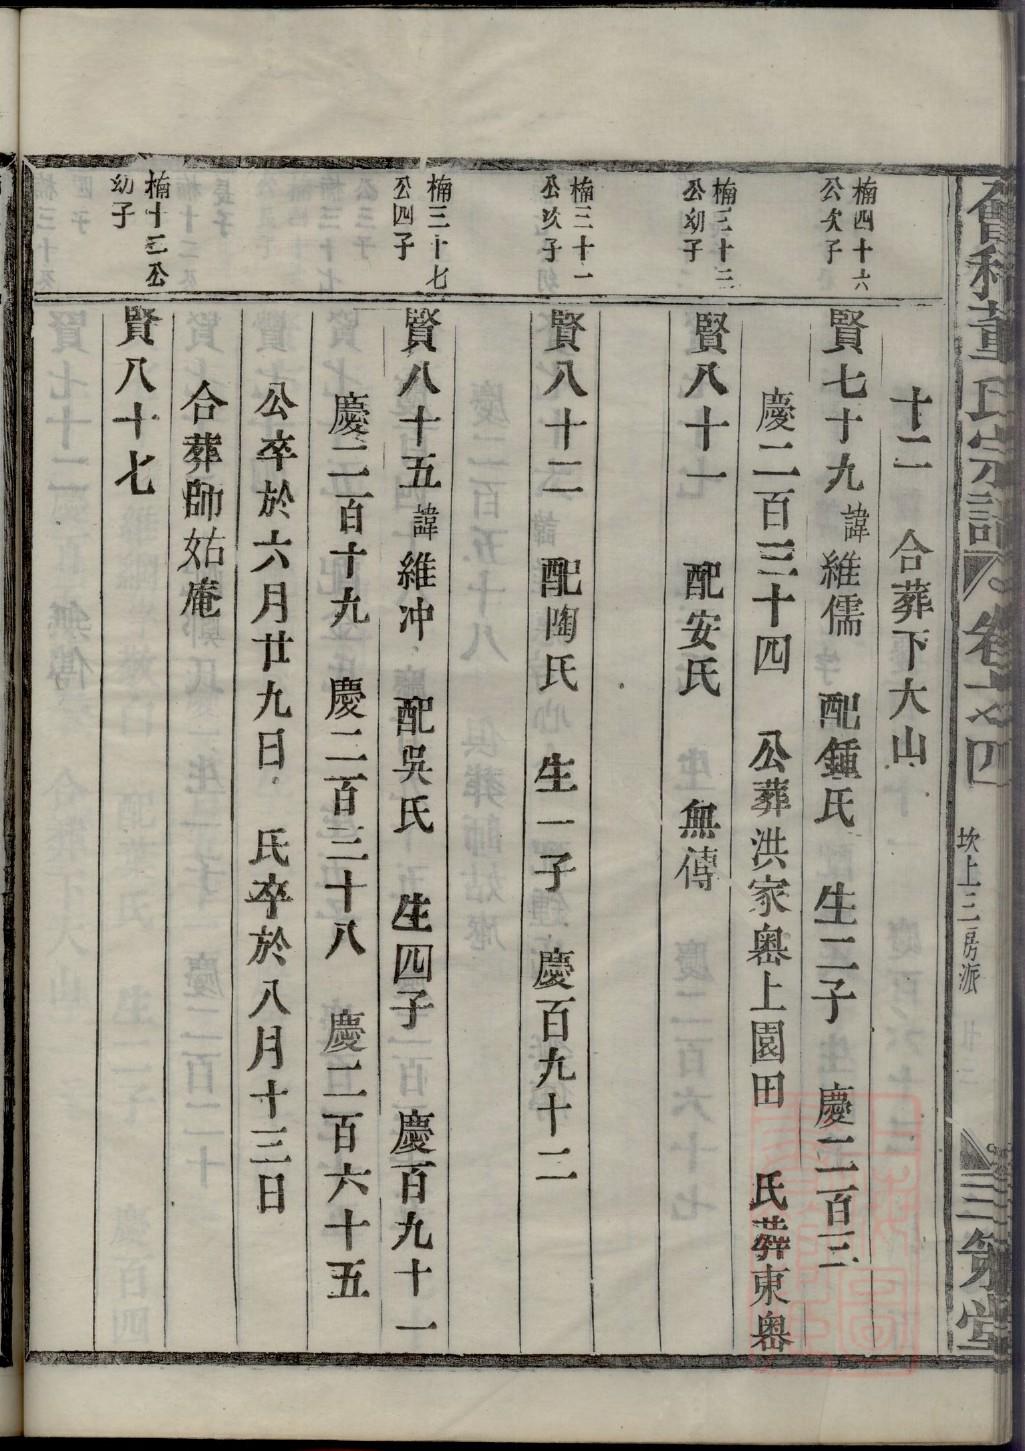 會稽董氏宗譜
卷之四
坎上三房派
三策堂
十二 合葬下大山
楠四十六
公次子
賢七十九 諱維儒 配鍾氏 生二子 慶二百三
慶二百三十四 公葬洪家嶴上園田 氏葬東嶴
楠三十三
公幼子
賢八十一 配安氏 無傳
楠三十一
公次子
賢八十二 配陶氏 生一子 慶百九十二
楠三十七
公四子
賢八十五 諱維冲 配吳氏 生四子 慶百九十一
慶二百十九 慶二百三十八 慶二百六十五
公卒於六月廿九日 氏卒於八月十三日
合葬師姑庵
楠十二公
幼子
賢八十七